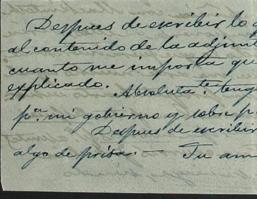 Despues de escribir lo q
al contenido de la adjun
cuanto me importa que
explicado. Absoluta.te teng
p.a mi gobierno y sobre p
Despues de escribir
algo de prisa. — Tu am